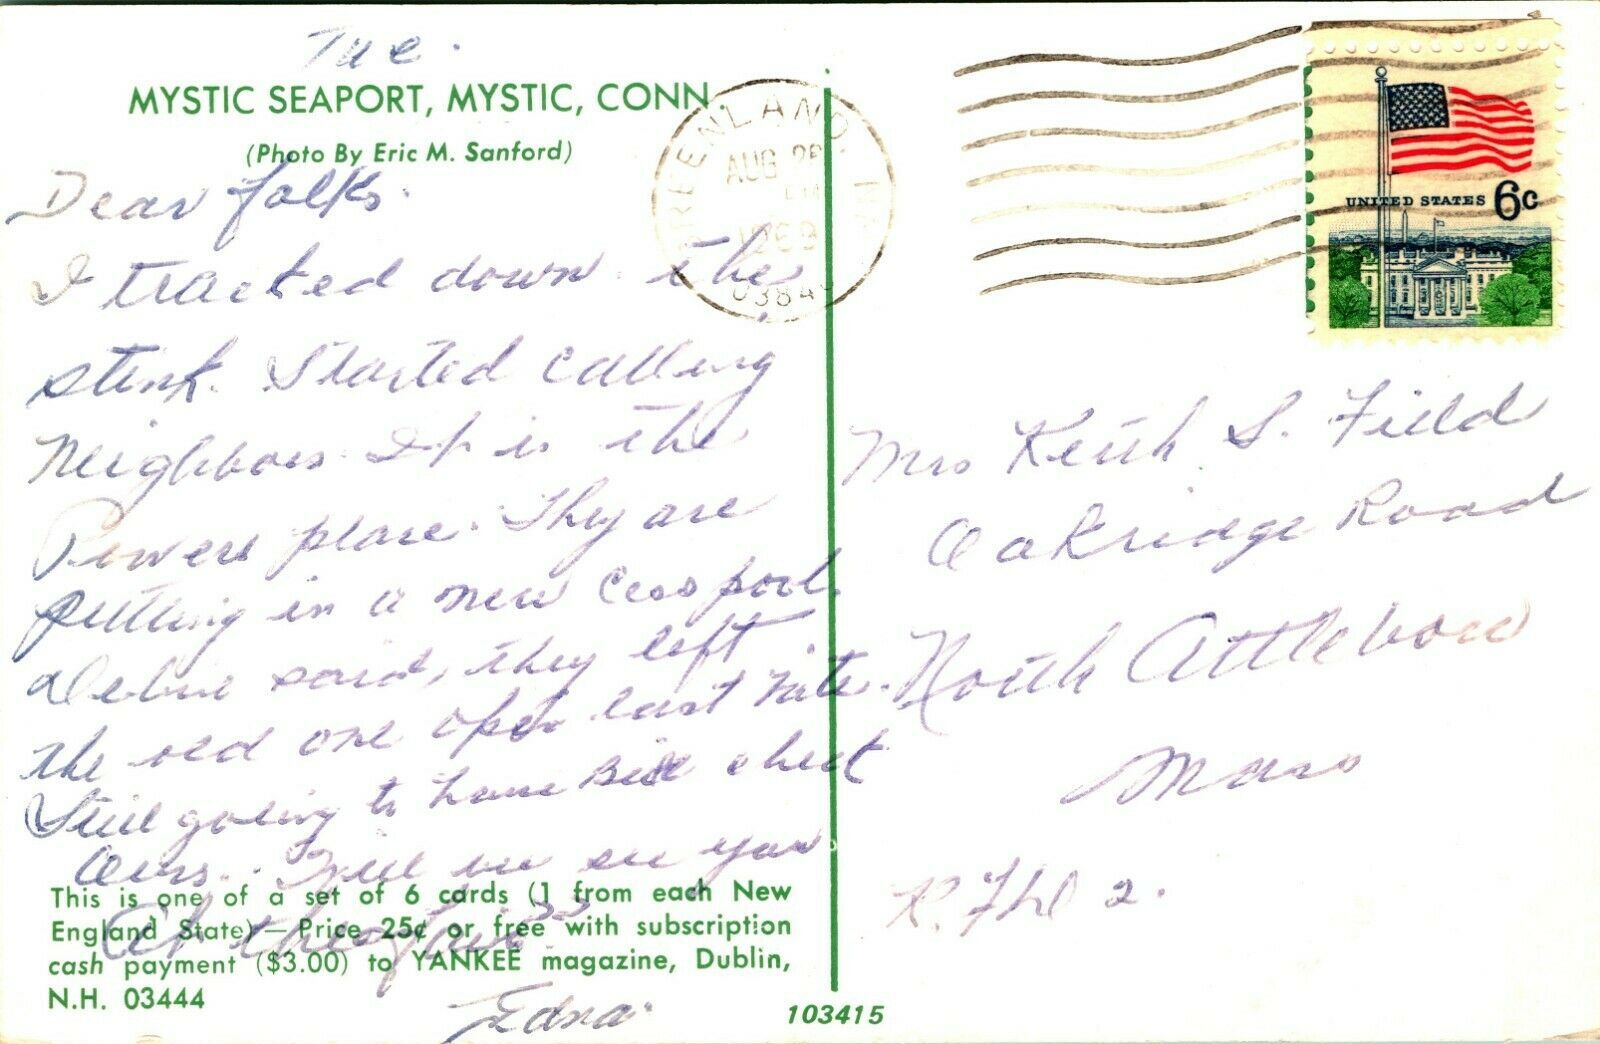 Tue.
MYSTIC SEAPORT, MYSTIC, CONN.
(Photo By Eric M. Sanford)
Dear folks.
I tracked down the
stink. Started calling
Neighbors. It is the
Powers place. They are
putting in a new cesspool.
said, they left
the old one open last nite.
Still going to have Bill check
ours. Will we see you
at the fair??
Edna.
This is one of a set of 6 cards (1 from each New
England State)—Price 25¢ or free with subscription
cash payment ($3.00) to YANKEE magazine, Dublin,
N.H. 03444
103415
GREENLAND, N.H.
AUG
PM
1969
0384
UNITED STATES 6c
Mrs Keith S. Field
Oakridge Road
North Attleboro
Mass
2.